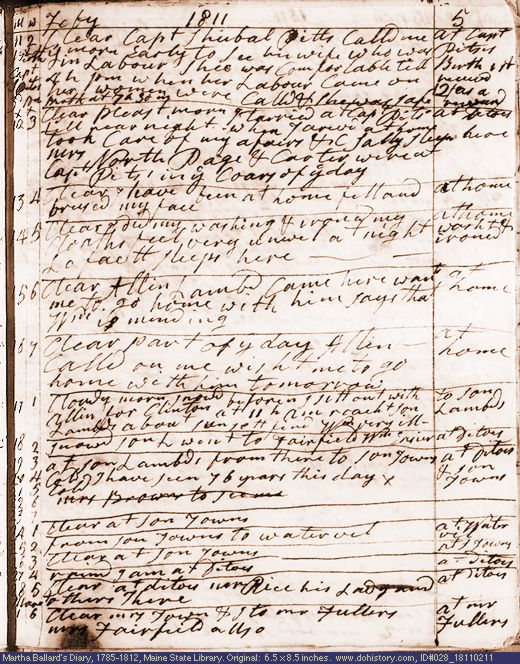 M W Feby 1811 5
11 2 Clear Capt Shubal Pitts Called me at Capt
y morn Early to see his wife who was Pittses
in Labour Shee was Comfortable till Birth 1st
4h pm when her Labour Came on
her women were Calld & She was safe
12 3 Clear pleast morn I tarried at Cap Pitts at Ditoes
till near night when I arivd at home
took Care of my afairs &C Sally Sleeps here
Mrs North Page & Carter were at
Capt Pitts ing Coars of y day
13 4 Clear I have been at home fell and at home
brused my face
14 5 Clear I did my washing & ironed my at home
Cloaths feel very unwel at night washt &
Lafaett sleeps here ironed
15 6 Clear Allin Lambd Came here want at
me to go home with him says tha home
Wm is mending
16 7 Clear part of y day Allen at
Calld on me wisht me to go home
home with him tomorrow
17 1 Cloudy morn before I sett out with to son
Allin for Clinton at 11 h am reacht son Lambds
Lambds about sunsett find Wm very ill
18 2 snowd son L went to Fairfield at ditoes
19 3 at son Lambds from there to son Towns at Ditoes
20 4 Cold I have seen 76 years this day x & son
mrs Browns to Towns
1 Clear at son Towns
2 from son Towns to watervil at Water
3 Clear at son Towns at s Towns
4 I am at Ditoes at ditoes
5 Clear at ditoes Rice his Lady and at ditoes
others there
6 Clear mrs Town & I to mr Fullers at mr
mrs Fairfield allso Fullers
Martha Ballard's Diary, 1785-1812, Maine State Library. Original: 6.5 x 8.5 inches. www.dohistory.com, ID#028_18110211